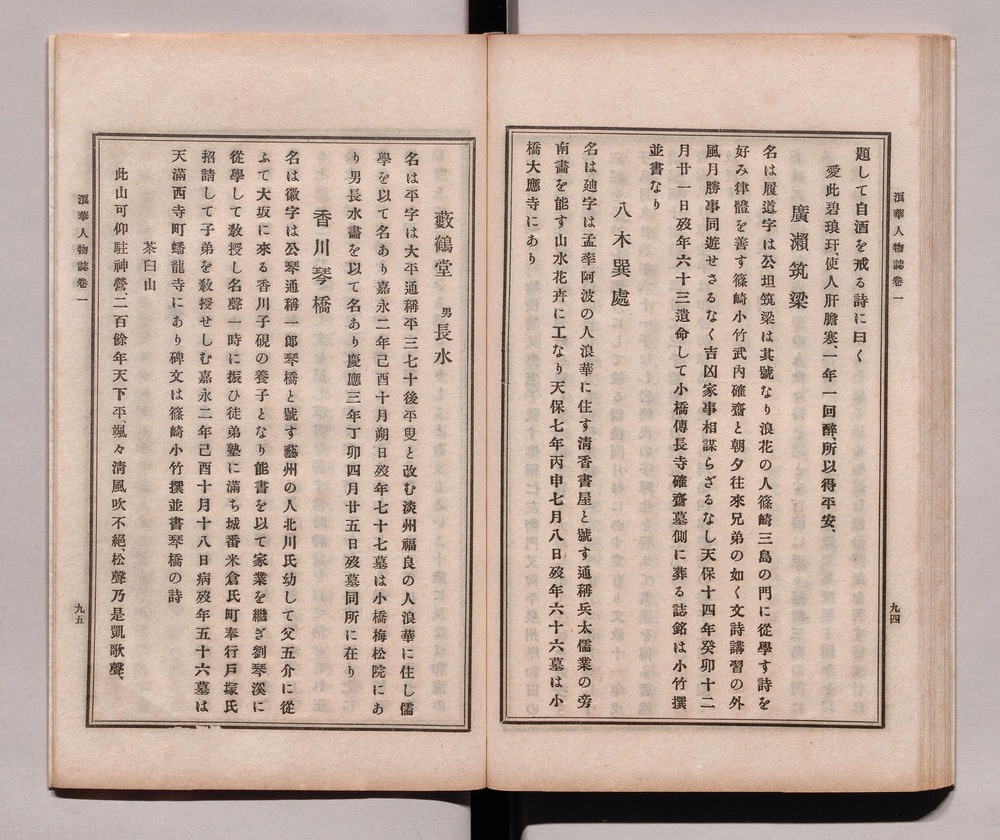 浪華人物誌卷一
九四
題して自酒を戒る詩に曰く
愛此碧琅玕使人肝膽寒、一年一回醉、所以得平安、
廣瀨筑梁
名は履道字は公坦筑梁は其號なり浪花の人篠崎三島の門に從學す詩を
好み律體を善す篠崎小竹武內確齋と朝夕往來兄弟の如く文詩講習の外
風月勝事同遊せさるなく吉凶家事相謀らざるなし天保十四年癸卯十二
月廿一日歿年六十三遺命して小橋傳長寺確齋墓側に葬る誌銘は小竹撰
並書なり
八木巽處
名は廸字は孟率阿波の人浪華に住す清香書屋と號す通稱兵太儒業の旁
南畫を能す山水花卉に工なり天保七年丙申七月八日歿年六十六墓は小
橋大應寺にあり
藪鶴堂 男長水
名は平字は大平通稱平三七十後平叟と改む淡州福良の人浪華に住し儒
學を以て名あり嘉永二年己酉十月朔日歿年七十七墓は小橋梅松院にあ
り男長水畫を以て名あり慶應三年丁卯四月廿五日歿墓同所に在り
香川琴橋
名は徽字は公琴通稱一郎琴橋と號す藝州の人北川氏幼して父五介に從
ふて大坂に來る香川子硯の養子となり能書を以て家業を繼ぎ劉琴溪に
從學して敎授し名聲一時に振ひ徒弟塾に滿ち城番米倉氏町奉行戸塚氏
招請して子弟を敎授せしむ嘉永二年己酉十月十八日病歿年五十六墓は
天滿西寺町蟠龍寺にあり碑文は篠崎小竹撰並書琴橋の詩
茶臼山
此山可仰駐神營二百餘年天下平颯々清風吹不絕、松聲乃是凱歌聲、
浪華人物誌卷一
九五